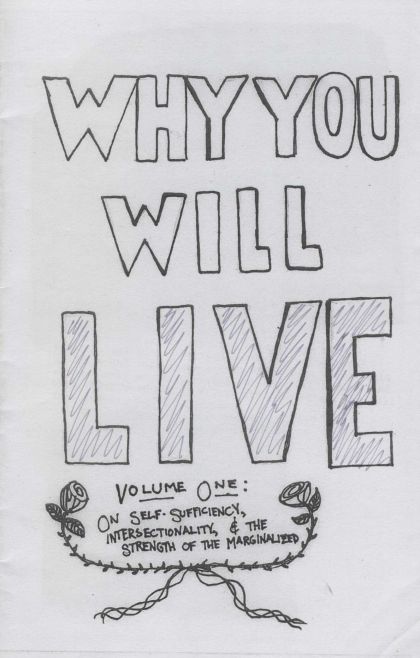 WHY YOU
WILL
LIVE
VOLUME ONE:
ON SELF-SUFFICIENCY,
INTERSECTIONALITY, & THE
STRENGTH OF THE MARGINALIZED